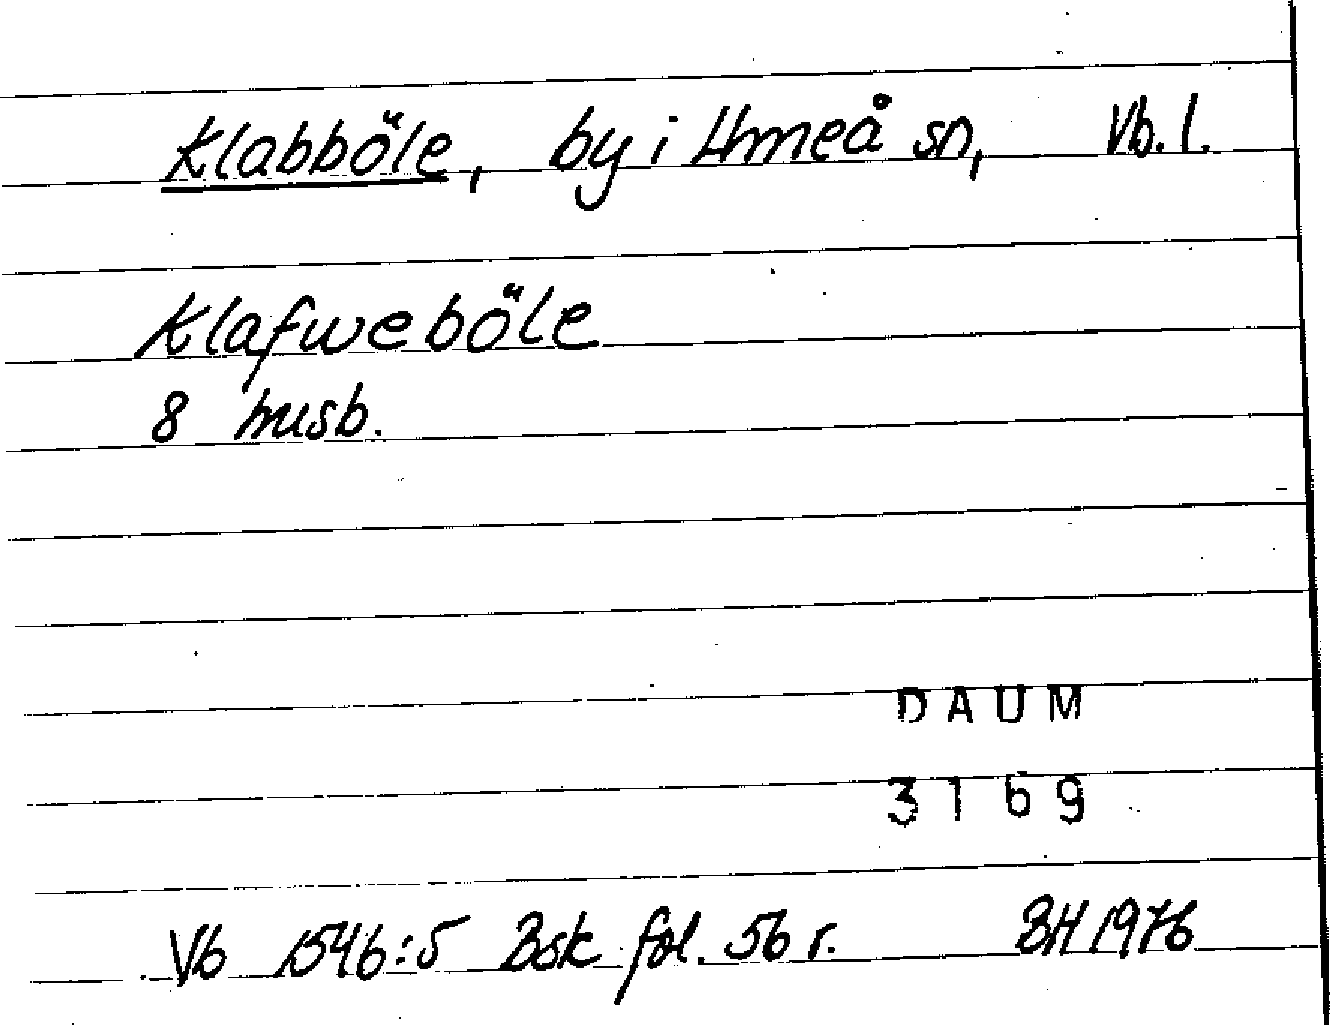 Klabböle, by i Umeå sn, Vb. l.
Klafweböle
8 husb.
DAUM
3169
Vb 1546:5 Bsk fol. 56 r. BH 1976